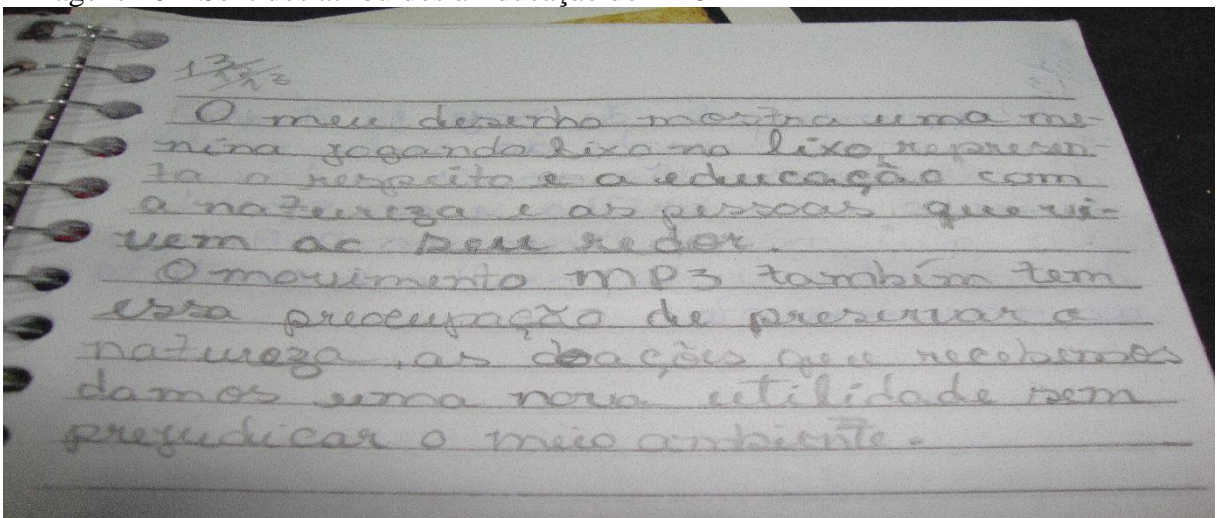 O meu desenho mostra uma me-
nina jogando lixo no lixo, represen-
ta o respeito e a educação com
a natureza e as pessoas que vi-
vem ao seu redor.
O movimento MP3 também tem
essa preocupação de preservar a
natureza, as doações que recebemos
damos uma nova utilidade sem
prejudicar o meio ambiente.